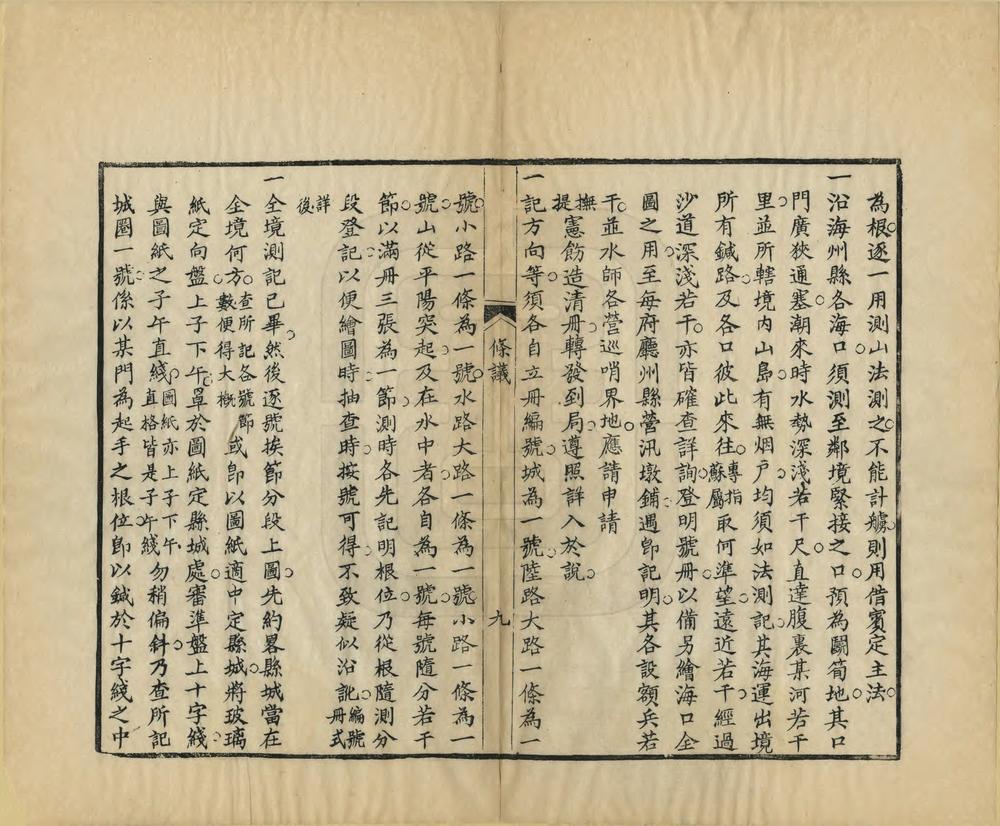 為根逐一用測山法測之不能計艣則用借賓定主法
一沿海州縣各海口須測至鄰境緊接之口預為鬭筍地其口
門廣狹通塞潮來時水勢深淺若干尺直達腹裏某河若干
里並所轄境內山島有無烟戶均須如法測記其海運出境
所有鍼路及各口彼此來往專指蘇屬取何準望遠近若干經過
沙道深淺若干亦皆確查詳詢登明號冊以備另繪海口全
圖之用至每府廳州縣營汛墩鋪遇即記明其各設額兵若
干並水師各營巡哨界地應請申請
撫
提憲飭造清冊轉發到局遵照詳入於說
一記方向等須各自立冊編號城為一號陸路大路一條為一
條議
九
號小路一條為一號水路大路一條為一號小路一條為一
號山從平陽突起及在水中者各自為一號每號隨分若干
節以滿冊三張為一節測時各先記明根位乃從根隨測分
段登記以便繪圖時抽查時按號可得不致疑似沿訛編號冊式
詳後
一全境測記已畢然後逐號挨節分段上圖先約畧縣城當在
全境何方查所記各號節數便得大概或即以圖紙適中定縣城將玻璃
紙定向盤上子下午罩於圖紙定縣城處審準盤上十字綫
與圖紙之子午直綫圖紙亦上子下午直格皆是子午綫勿稍偏斜乃查所記
城圈一號係以某門為起手之根位即以鍼於十字綫之中